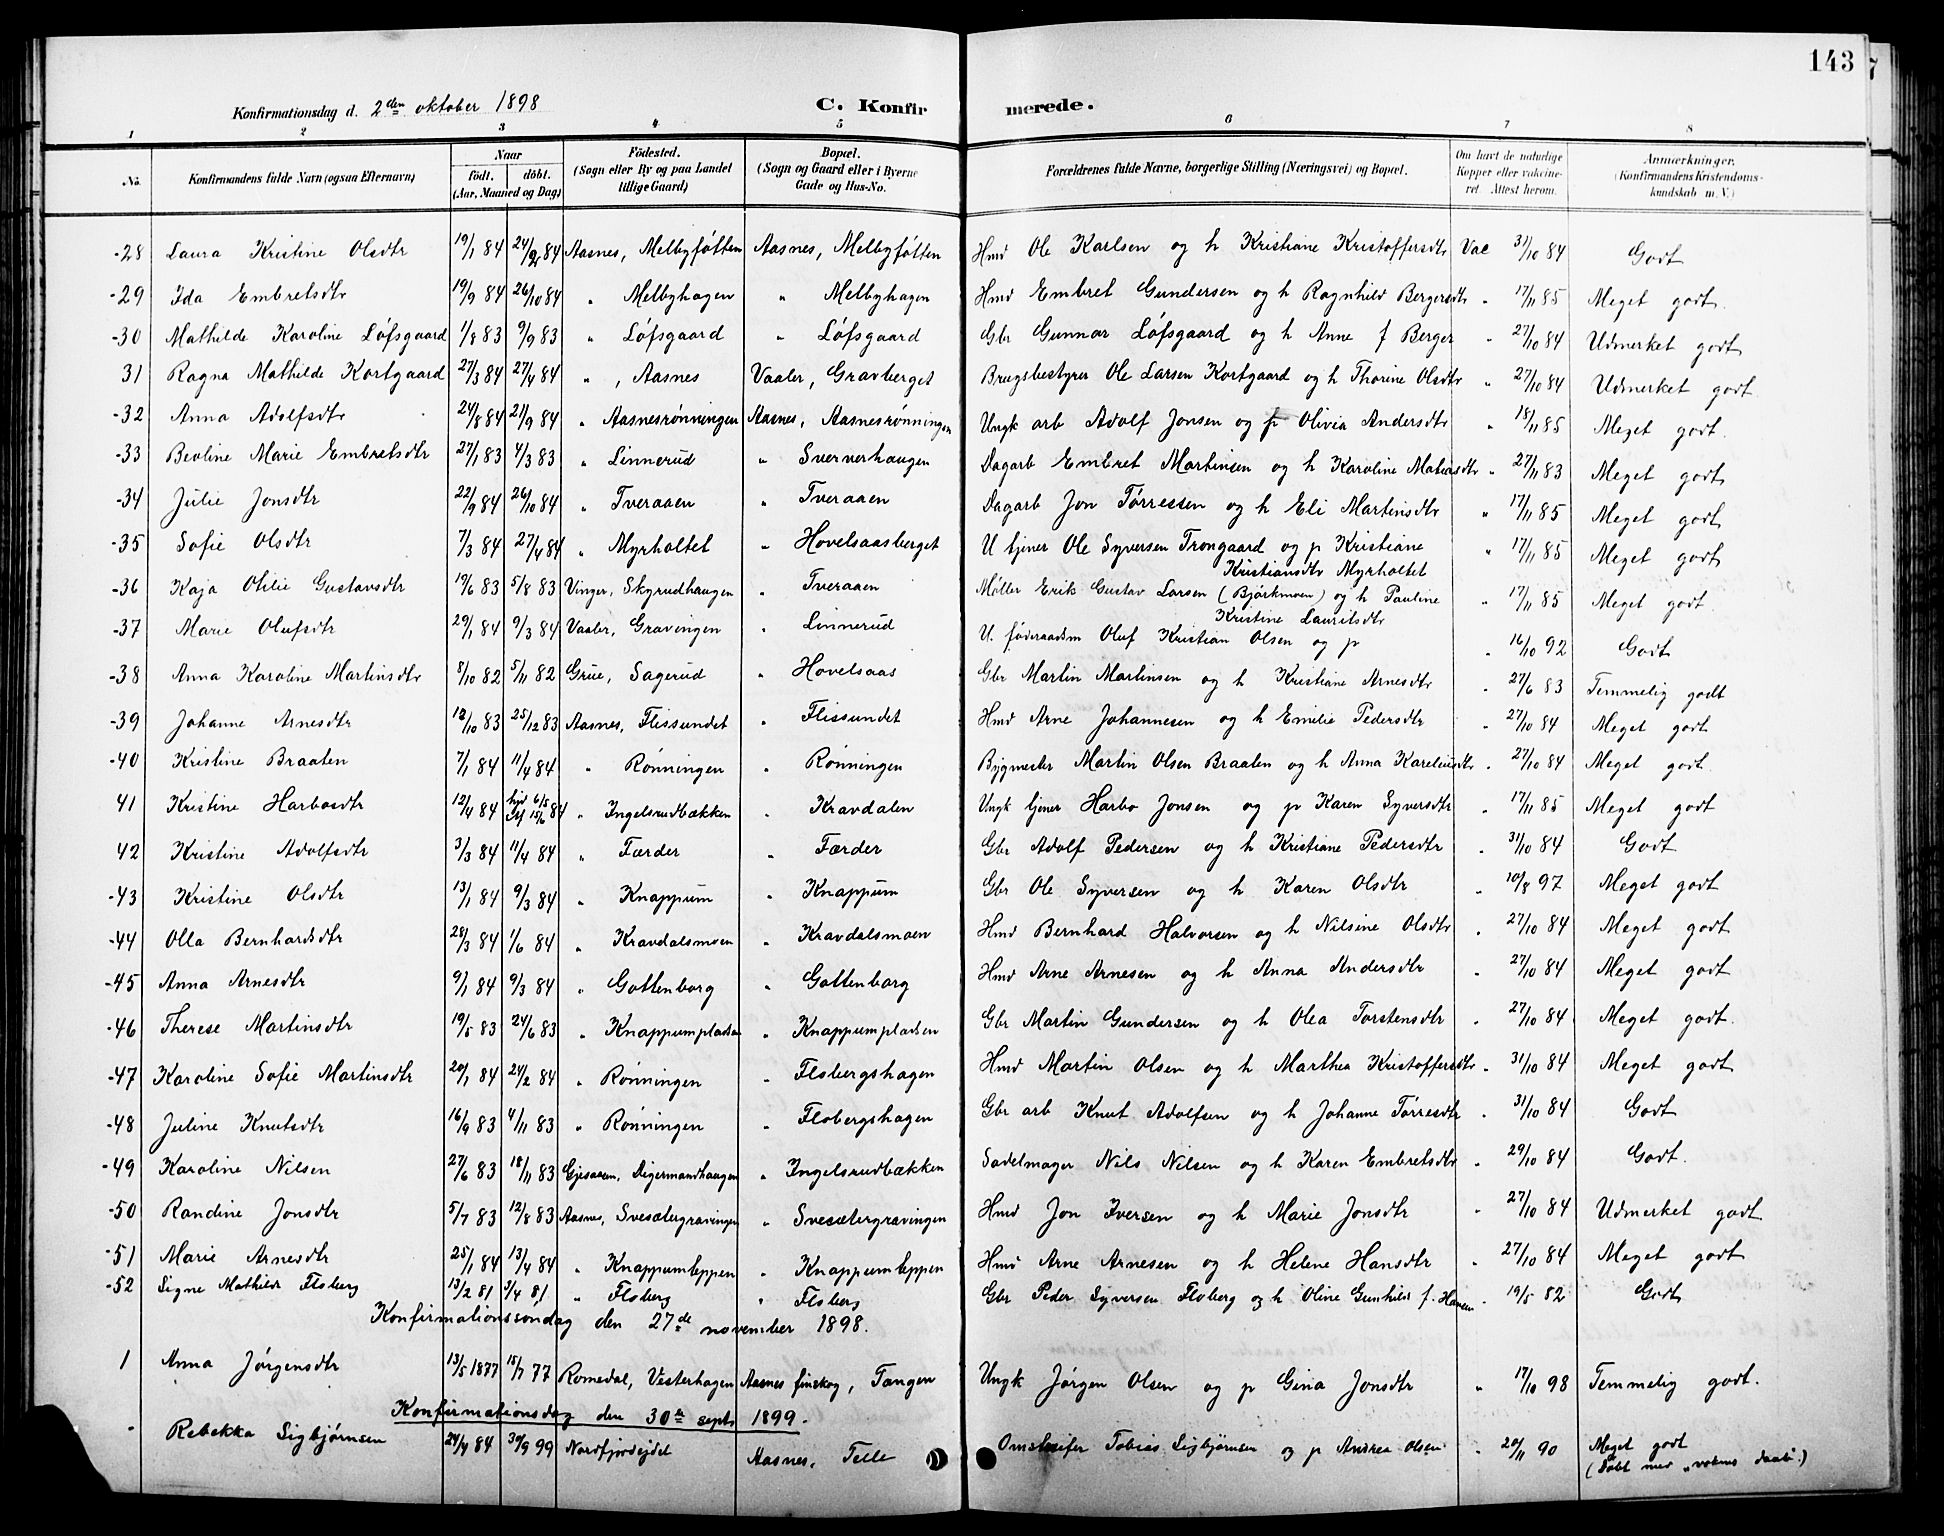 143
Konfirmationsdag d. 2den oktober 1898 C. Konfirmerede.
1 2 3 4 5 6 7 8
No. Konfirmandens fulde Navn (ogsaa Efternavn) Naar födt. döbt. (Aar, Maaned og Dag) Födested. (Sogn eller By og paa Landet tillige Gaard) Bopæl. (Sogn og Gaard eller i Byerne Gade og Hus-No. Forældrenes fulde Navne, borgerlige Stilling (Næringsvei) og Bopæl. Om havt de naturlige Kopper eller vakcineret. Attest herom. Anmærkninger. (Konfirmandens Kristendomskundskab m. V.)
-28 Laura Kristine Olsdtr 19/1 84 24/2 84 Aasnes, Melbyføtten Aasnes, Melbyføtten Hmd Ole Karlsen og h Kristiane Kristoffersdtr Vac 31/10 84 Godt
-29 Ida Embretsdtr 19/9 84 26/10 84 " Melbyhagen " Melbyhagen Hmd Embret Gundersen og h Ragnhild Bergersdtr " 17/11 85 Meget godt.
-30 Mathilde Karoline Løfsgaard 1/8 83 9/9 83 " Løfsgaard " Løfsgaard Gbr Gunnar Løfsgaard og h Anne f Berger " 27/10 84 Udmerket godt
31 Ragna Mathilde Kortgaard 27/3 84 27/4 84 " , Aasnes Vaaler, Gravberget Brugsbestyrer Ole Larsen Kortgaard og h Thorine Olsdtr " 27/10 84 Udmerket godt
-32 Anna Adolfsdtr 24/8 84 21/9 84 " Aasnesrønningen Aasnes, Aasnesrønningen Ungk arb Adolf Jonsen og p Olivia Andersdtr " 18/11 85 Meget godt.
-33 Beoline Marie Embretsdtr 27/1 83 4/3 83 " Linnerud " Sververhaugen Dagarb Embret Martinsen og h Karoline Matiasdtr " 27/11 83 Meget godt
-34 Julie Jonsdtr 22/9 84 26/10 84 " Tveraaen " Tveraaen Dagarb Jon Tørressen og h Eli Martinsdtr " 17/11 85 Meget godt
-35 Sofie Olsdtr 7/3 84 27/4 84 " Myrholtet " Hovelsaasberget U tjener Ole Syversen Trongaard og p Kristiane Kristiansdtr Myrholtet " 17/11 85 Meget godt
-36 Kaja Otilie Gustavsdtr 19/6 83 5/8 83 Vinger, Skyrudhaugen " Tveraaen Møller Erik Gustav Larsen (Bjørkmoen) og h Pauline Kristine Lauritsdtr " 17/11 85 Meget godt.
-37 Marie Olufsdtr 29/1 84 9/3 84 Vaaler, Gravingen " Linnerud U. føderaadsm Oluf Kristian Olsen og p " 16/10 92 Godt
-38 Anna Karoline Martinsdtr 8/10 82 5/11 82 Grue, Sagerud " Hovelsaas Gbr Martin Martinsen og h Kristiane Arnesdtr " 27/6 83 Temmelig godt
-39 Johanne Arnesdtr 12/10 83 25/12 83 Aasnes, Flissundet " Flissundet Hmd Arne Johannesen og h Emilie Pedersdtr " 27/10 84 Meget godt
-40 Kristine Braaten 7/1 84 11/4 84 " Rønningen " Rønningen Bygmester Martin Olsen Braaten og h Anna Kareliusdtr " 27/10 84 Meget godt.
41 Kristine Harbosdtr 12/4 84 hjd 6/5 Stf 15/6 84 " Ingelsrudbækken " Kravdalen Ungk tjener Harbo Jonsen og p Karen Syversdtr " 17/11 85 Meget godt
42 Kristine Adolfsdtr 3/3 84 11/4 84 " Færder " Færder Gbr Adolf Pedersen og h Kristiane Pedersdtr " 31/10 84 Godt
-43 Kristine Olsdtr 13/1 84 9/3 84 " Knappum " Knappum Gbr Ole Syversen og h Karen Olsdtr " 10/8 97 Meget godt
-44 Olla Bernhardsdtr 28/3 84 1/6 84 " Kravdalsmoen " Kravdalsmoen Hmd Bernhard Halvorsen og h Nilsine Olsdtr " 27/10 84 Meget godt
-45 Anna Arnesdtr 9/1 84 9/3 84 " Gottenborg " Gottenborg Hmd Arne Arnesen og h Anna Andersdtr " 27/10 84 Meget godt
-46 Therese Martinsdtr 19/5 83 24/6 83 " Knappumpladsen " Knappumpladsen Gbr Martin Gundersen og h Olea Torstensdtr " 27/10 84 Meget godt.
-47 Karoline Sofie Martinsdtr 20/1 84 24/2 84 " Rønningen " Flobergshagen Hmd Martin Olsen og h Marthea Kristoffersdtr " 31/10 84 Meget godt
-48 Juline Knutsdtr 16/9 83 4/11 83 " Rønningen " Flobergshagen Gbr arb Knut Adolfsen og h Johanne Tørresdtr " 31/10 84 Godt
-49 Karoline Nilsen 27/6 83 18/11 83 Gjesaasen, Digermandhaugen " Ingelsrudbækken Sadelmager Nils Nilsen og h Karen Embretsdtr " 29/10 84 Godt.
-50 Randine Jonsdtr 5/7 83 12/8 83 Aasnes, Svesætergravingen " Svesætergravingen Hmd Jon Iversen og h Marie Jonsdtr " 27/10 84 Udmerket godt
-51 Marie Arnesdtr 25/1 84 13/4 84 " Knappumteppen " Knappumteppen Hmd Arne Arnesen og h Helene Hansdtr " 27/10 84 Meget godt
-52 Signe Mathilde Floberg 13/2 81 3/4 81 " Floberg " Floberg Gbr Peder Syversen Floberg og h Oline Gunhild f. Hansen " 19/5 82 Godt
Konfirmationssøndag den 27de november 1898.
1 Anna Jørgensdtr 13/5 1877 15/7 77 Romedal, Vesterhagen Aasnes finskog, Tangen Ungk Jørgen Olsen og p Gina Jonsdtr " 17/10 98 Temmelig godt.
Konfirmationsdag den 30te sept 1899.
- Rebekka Sigbjørnsen 24/4 84 30/9 99 Nordfjordeidet Aasnes, Telle Tobias Sigbjørnsen og p Andrea Olsen " 20/11 90 Meget godt (Døbt med "voksnes daab".)